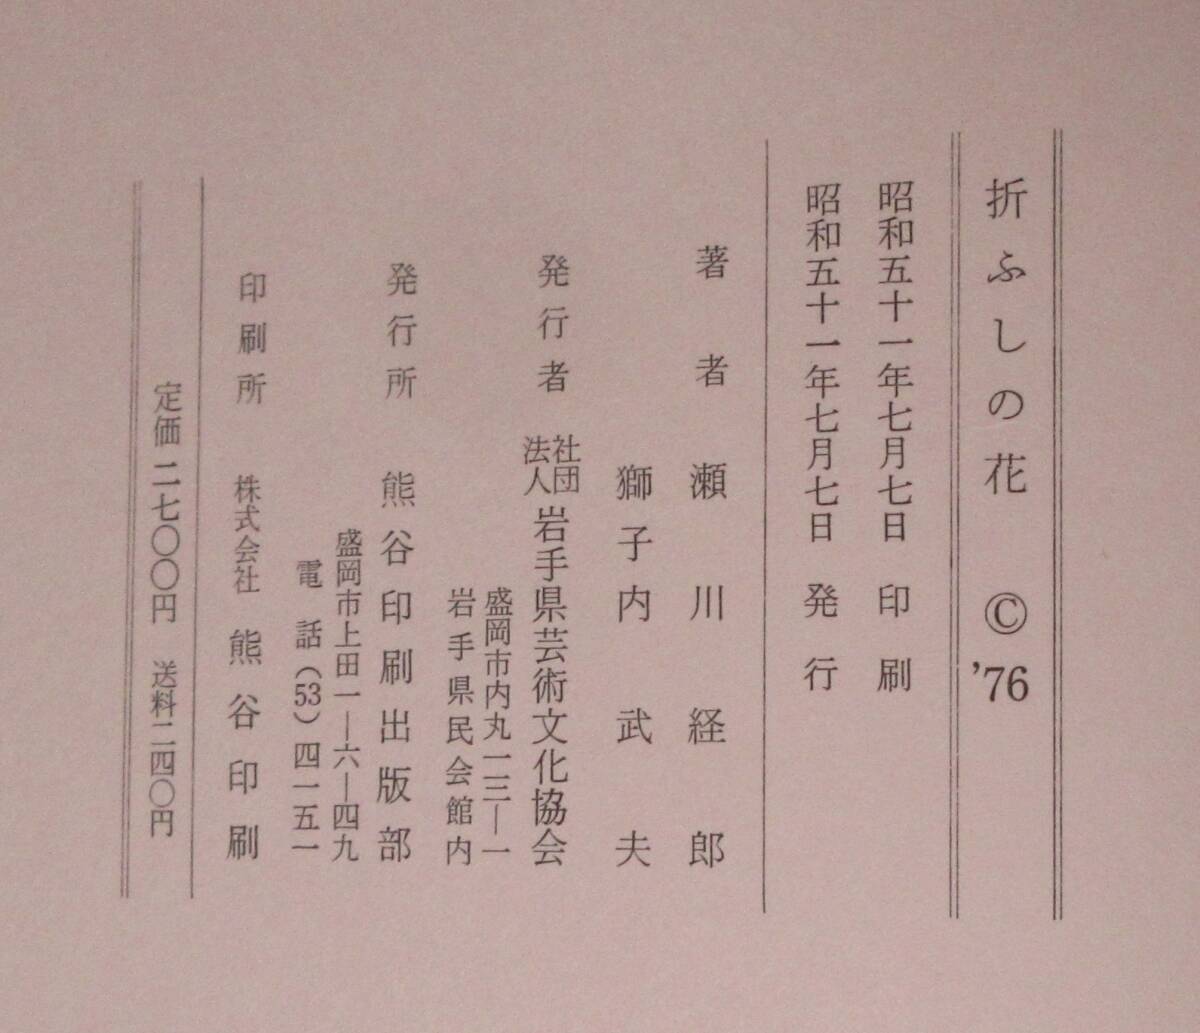 折ふしの花　©'76
昭和五十一年七月七日　印刷
昭和五十一年七月七日　発行
著者　瀬川経郎
獅子内武夫
発行者　社団法人岩手県芸術文化協会
盛岡市内丸一三―一
岩手県民会館内
発行所　熊谷印刷出版部
盛岡市上田一―六―四九
電話（53）四一五一
印刷所　株式会社　熊谷印刷
定価二七〇〇円　送料二四〇円